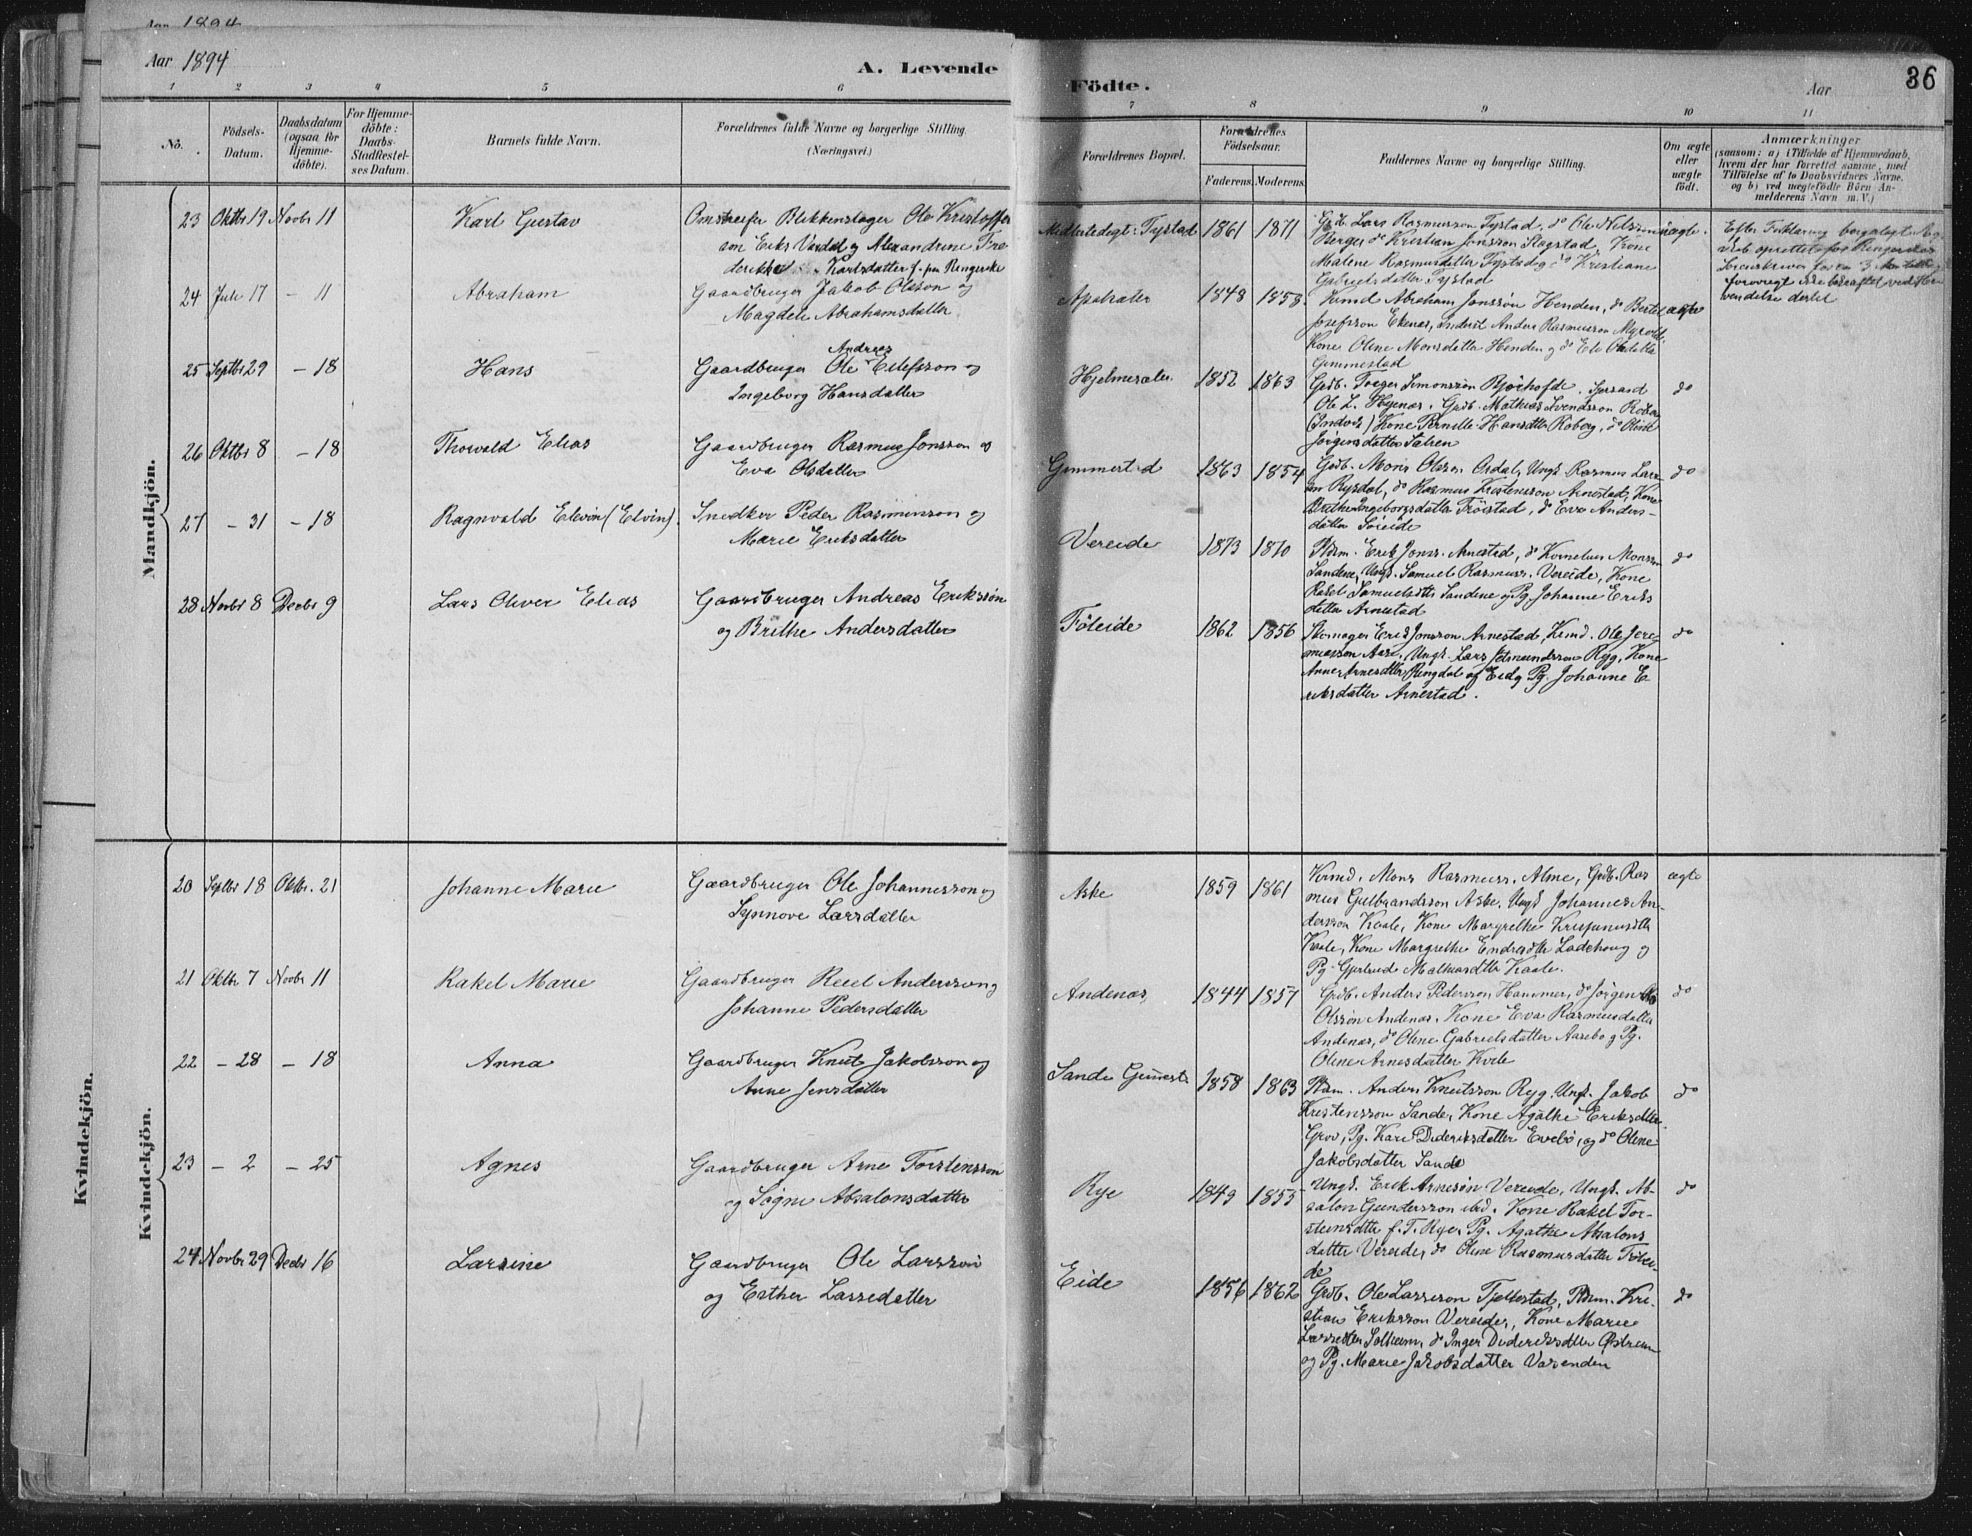 Aar 1894
Aar 1894
A. Levende
Födte.
Aar
36
1 2 3 4 5 6 7 8 9 10 11
No.
Födsels-
Datum.
Daabsdatum
(ogsaa for
Hjemme-
döbte).
For Hjemme-
döbte:
Daabs-
Stadfæstel-
ses Datum.
Barnets fulde Navn.
Forældrenes fulde Navne og borgerlige Stilling.
(Næringsvei.)
Forældrenes Bopæl.
Forældrenes
Födselsaar.
Faderens. Moderens.
Faddernes Navne og borgerlige Stilling.
Om ægte
eller
uægte
födt.
Anmærkninger
(saasom: a) i Tilfælde af Hjemmedaab,
hvem der har forrettet samme, med
Tilföielse af to Daabsvidners Navne.
og b) ved uægtefödte Börn An-
melderens Navn m. V.)
Mandkjön.
23 Oktbr 19 Novbr 11 Karl Gustav
Omstreifer Blikkenslager Ole Kristoffer
son Eriks Vardal og Alexandrine Fre
derikke Karlsdatter f. paa Ringerike
Midlertidigt: Tystad 1861 1871
Grdb. Lars Rasmusson Tystad, do Ole Nilsson
Berge, do Kristian Jonsson Slagstad, Kone
Malene Rasmusdatter Tystad og do Kristiane
Gabrielsdatter Tystad
uægte.
Efter Forklaring borgerligt
oprettet for Ringerikes
Sorenskriver for ca 3
forøvrigt ikke bekræftet ved Hen
vendelse dertil
24 Juli 17 – 11 Abraham
Gaardbruger Jakob Olsson og
Magdeli Abrahamsdatter
Apalsæter 1848 1858.
Kaard Abraham Jonsson Henden, do Bertel
Josefsson Ekenæs, Inderst Anders Rasmusson Myrold,
Kone Oline Monsdatter Henden og do Eli Olsdatter
Gimmestad
ægte
25 Septbr 29 – 18 Hans
Andreas
Gaardbruger Ole Eilefsson og
Ingeborg Hansdatter
Hjelmesæter 1852 1863
Grdb. Torger Simonsson Bjørhofde,
Ole L. Hyenæs. Grdb. Mathias Svendsson Roborg
(Indvik) Kone Pernille Hansdtr Roborg, do Oline
Jörgensdatter
do
26 Oktbr 8 – 18 Thorvald Elias
Gaardbruger Rasmus Jonsson og
Eva Olsdatter
Gimmestad 1863 1854
Grdb. Mons Olsson Osdal, Ungk. Rasmus Lars
son Rygdal, do Rasmus Kristensson Arnestad, Kone
Brithe Ingeborgsdatter Fröistad, do Eva Anders-
datter Söreide
do
27 – 31 – 18 Ragnvald Elevin (Elvin).
Snedker Peder Rasmusson og
Marie Eriksdatter
Vereide 1873 1870
Pldsm. Erik Jonss. Arnestad, do Kornelius Monsson
Sandene, Ungk. Samuel Rasmuss. Vereide, Kone
Rakel Samuelsdtr Sandene og Pg. Johanne Eriks
datter Arnestad
do
28 Novbr 8 Decbr 9 Lars Oliver Elias
Gaardbruger Andreas Eriksson
og Brithe Andersdatter
Föleide 1862 1856
Skomager Erik Jonsson Arnestad, Kaard. Ole Jere-
miasson Aase, Ungk. Lars Edmundsson Ryg, Kone
Anne Arnesdtter Ringdal af Eid og Pg. Johanne E
riksdatter Arnestad.
do
Kvindekjön.
Kvindekjön.
20 Septbr 18 Oktbr. 21 Johanne Marie
Gaardbruger Ole Johannesson og
Synnove Larsdatter
Aske 1859 1861
Kaard. Mons Rasmuss. Alme, Grdb. Ras
mus Gulbrandsson Aske, Ungk Johannes An-
dersson Kaale, Kone Margrethe
Kaale, Kone Margrethe Endresdtr Ladehaug og
Pg. Gjertrud Mathiasdtr Kaale.
ægte
21 Oktbr 7 Novbr 11 Rakel Marie
Gaardbruger Reiel Andersson og
Johanne Pedersdatter
Andenæs 1844 1857
Grdb. Anders Pedersson Hammer, do Jörgen
Olsson Andenæs, Kone Eva Rasmusdatter
Andenæs, do Oline Gabrielsdatter Aasebø og Pg.
Oline Arnesdatter Kvile
do
22 – 28 – 18 Anna
Gaardbruger Knut Jakobsson og
Anne Jensdatter
Sande Gimest. 1858 1863
Pldsm. Anders Knutsson Ryg, Ungk. Jakob
Kristensson Sande, Kone Agathe Eriksdatter
Grov, Pg. Kari Dideriksdatter Evebö, og do Oline
Jakobsdatter Sande
do
23 – 2 – 25 Agnes
Gaardbruger Arne Torstensson
og Signe Absalonsdatter
Rye 1849 1855
Ungk. Erik Arnesön Vereide, Ungk. Ab-
salon Gundersson ibid. Kone Rakel Tor-
steinsdtr f. T. Rye, Pg. Agathe Absalons
datter Vereide, do Oline Rasmusdatter Fölei-
de
do
24 Novbr 29 Decbr 16 Larsine
Gaardbruger Ole Larsson
og Esther Lassedatter
Eide 1856 1862
Grdb. Ole Larsson Tjellestad, Pldsm. Kri-
stian Eriksson Vereide, Kone Marie
Lassedtr Solheim, do Inger Dideriksdtr Østrem
og Pg. Marie Jakobsdatter Vasenden
do